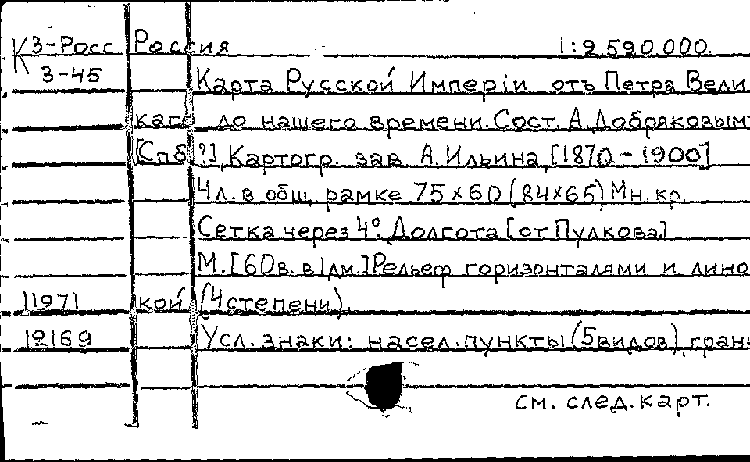 К3-Росс Россия 1:2.520.000.
3-45 Карта Русской Имперіи отъ Петра Вели
каго до нашего времени. Сост. А. Добряковым
[Спб?], Картогр. зав. А. Ильина, [1870-1900]
4 л. в общ. рамке 75×60 (84×65) Мн. кр.
Сетка через 4°. Долгота [от Пулкова]
М. [60в. в 1 дм.] Рельеф горизонталями и лино
11971 кой (4 степени).
12169 Усл. знаки: насел. пункты (5 видов), грани
см. след. карт.